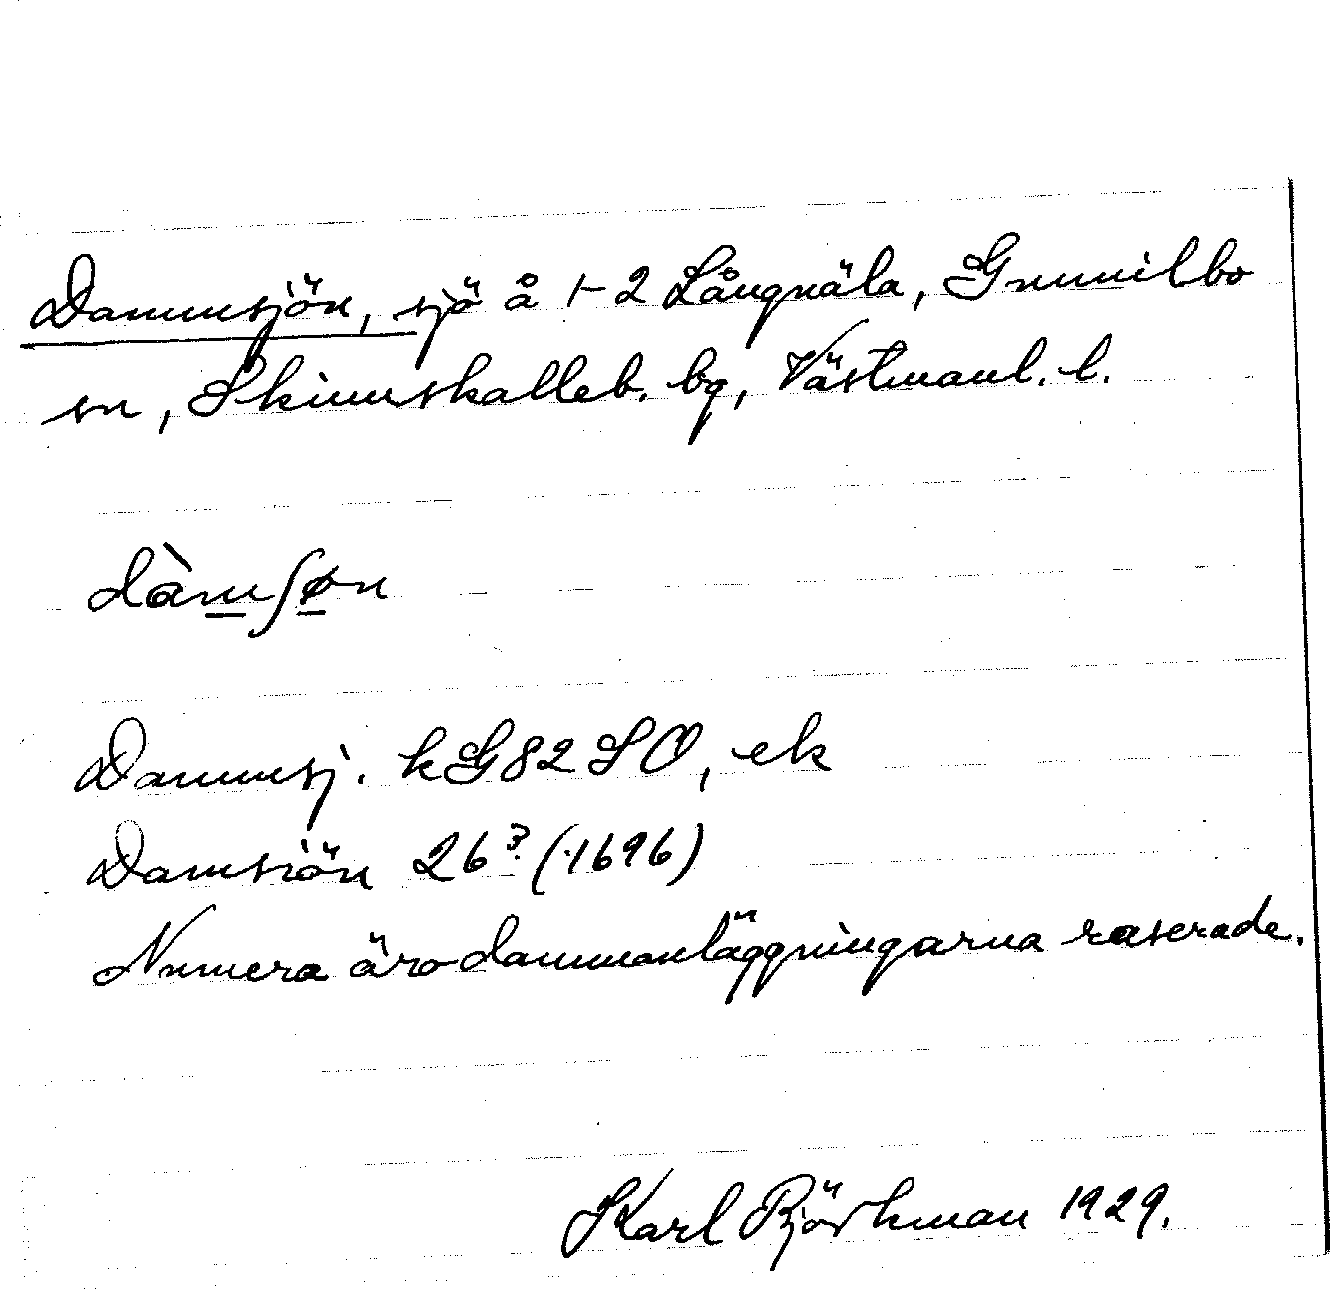 Dammsjön, sjö å 1-2 Långnäla, Gunnilbo
sn, Skinnskatteb. bg, Västmanl. l.
dàmʃøn
Dammsj. kG82SO, ek
Damsiön 26³ (1696)
Numera äro dammanläggningarna raserade.
Karl Björkman 1929.